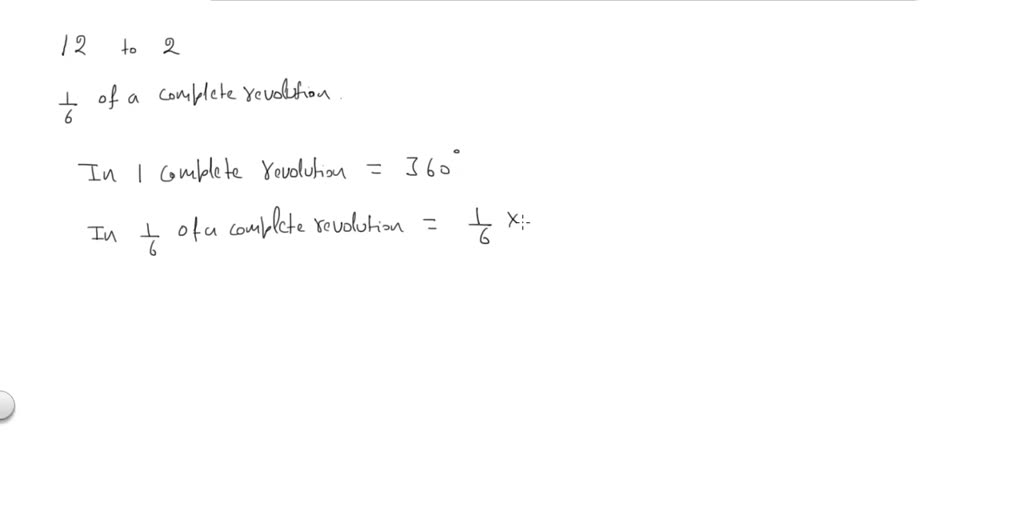 12 to 2
1/6 of a complete revolution.
In 1 complete revolution = 360°
In 1/6 of a complete revolution = 1/6 ×